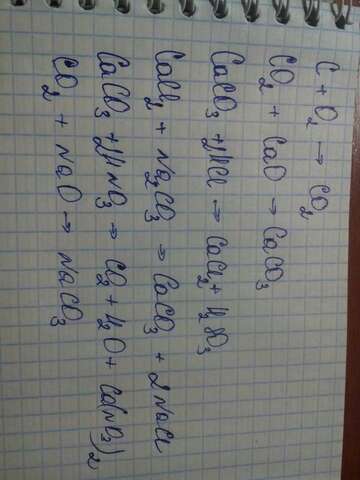 C + O₂ → CO₂
CO₂ + CaO → CaCO₃
CaCO₃ + 2HCl → CaCl₂ + H₂CO₃
CaCl₂ + Na₂CO₃ → CaCO₃ + 2NaCl
CaCO₃ + 2HNO₃ → CO₂ + H₂O + Ca(NO₃)₂
CO₂ + NaO → NaCO₃